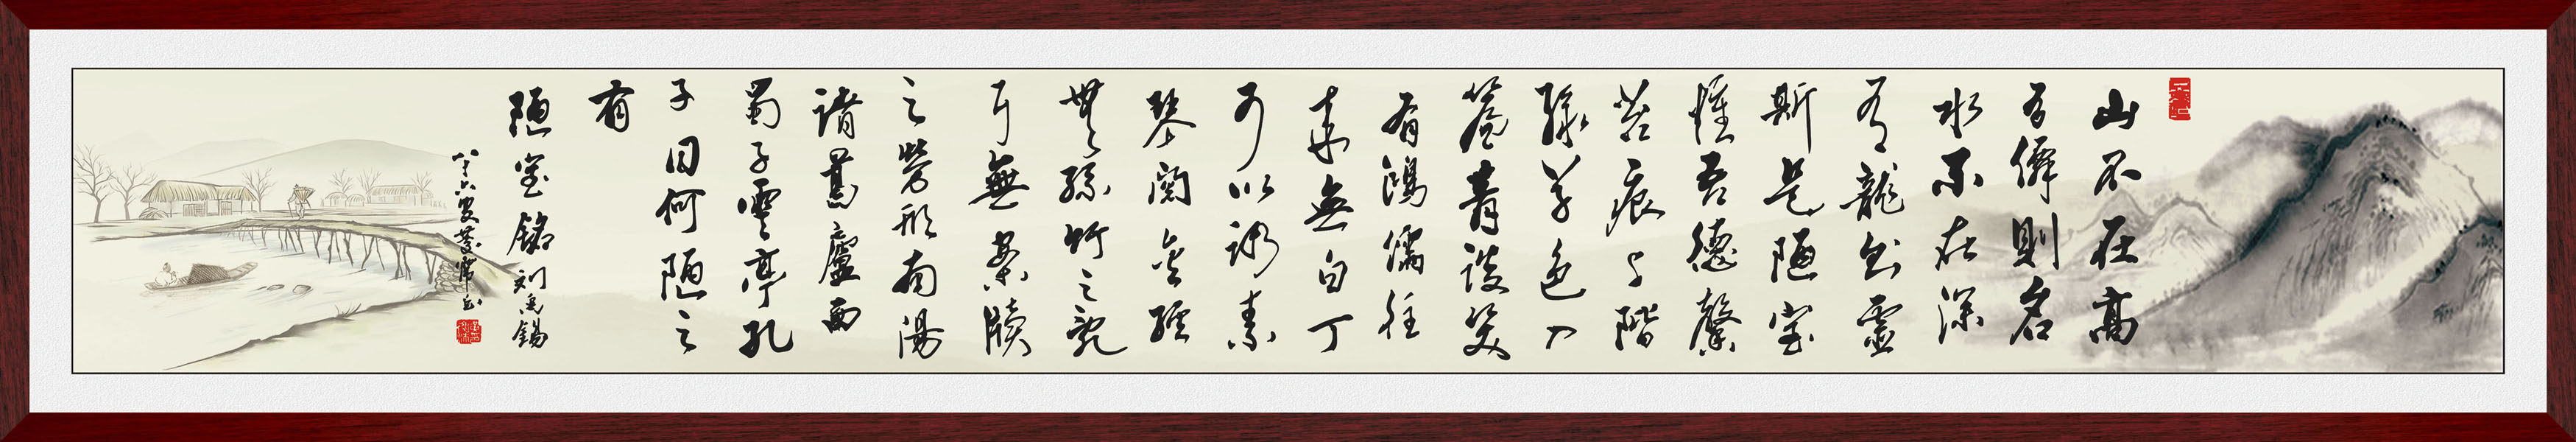 山不在高
有僊則名
水不在深
有龍則靈
斯是陋室
惟吾德馨
苔痕上階
綠草色入
簾青談笑
有鴻儒往
來無白丁
可以調素
琴閱金經
無絲竹之亂
耳無案牘
之勞形南陽
諸葛廬西
蜀子雲亭孔
子曰何陋之
有
陋室銘 刘禹錫